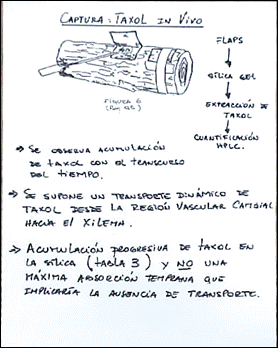 CAPTURA: TAXOL IN VIVO
FLAPS
SÍLICA GEL
EXTRACCIÓN DE
TAXOL
CUANTIFICACIÓN
HPLC.
FIGURA 6
SE OBSERVA ACUMULACIÓN
DE TAXOL CON EL TRANSCURSO
DEL TIEMPO.
SE SUPONE UN TRANSPORTE DINÁMICO DE
TAXOL DESDE LA REGIÓN VASCULAR CAMBIAL
HACIA EL XILEMA.
ACUMULACIÓN PROGRESIVA DE TAXOL EN
LA SÍLICA (TABLA 3) Y NO UNA
MÁXIMA ADSORCIÓN TEMPRANA QUE
IMPLICARÍA LA AUSENCIA DE TRANSPORTE.